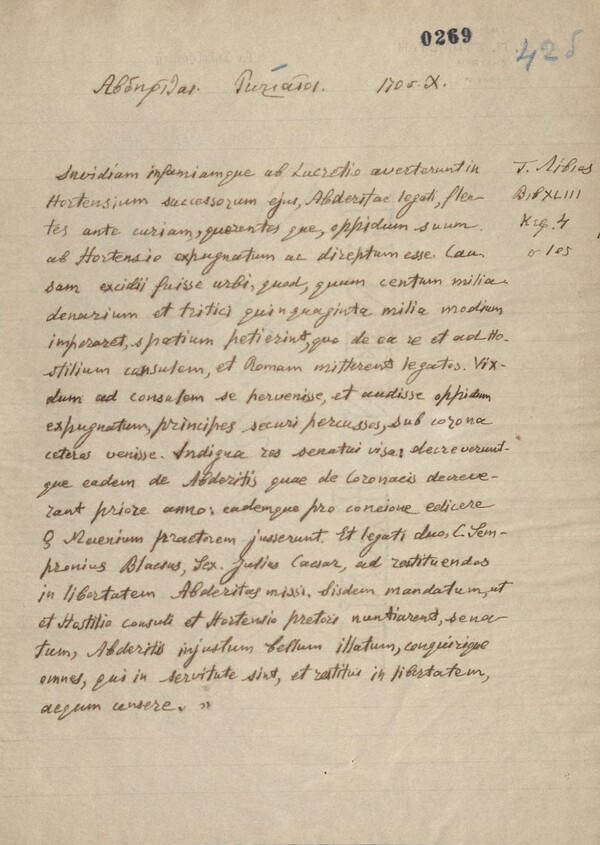 0269
425
Αβδηρίται. Ρωμαίοι. 170 π.Χ.
Τ. Λίβιος
Βιβ XLIII
Κεφ. 4
σ 105
Invidiam infamiamque ab Lucretio averterunt in
Hortensium successorum ejus, Abderitae legati, flen-
tes ante curiam, querentes que, oppidum suum
ab Hortensio expugnatum ac direptum esse. Cau-
sam excidii fuisse urbi, quod, quum centum milia
denarium et tritici quinquaginta milia modium
imperaret, spatium petierint, quo de ea re et ad Ho-
stilium consulem, et Romam mitterent legatos. Vix-
dum ad consulem se pervenisse, et audisse oppidum
expugnatum, principes securi percussos, sub corona
ceteros venisse. Indigna res senatui visa; decreverunt-
que eadem de Abderitis quae de Coronaeis decreve-
rant priore anno; eademque pro concione edicere
Q Maenium praetorem jusserunt. Et legati duo, C. Sem-
pronius Blaesus, Sex. Julius Caesar, ad restituendos
in libertatem Abderitas missi. Iisdem mandatum, ut
et Hostilio consuli et Hortensio pretori nuntiarent, sena-
tum, Abderitis injustum bellum illatum, conquirique
omnes, qui in servitute sint, et restitui in libertatem,
aequm censere. »